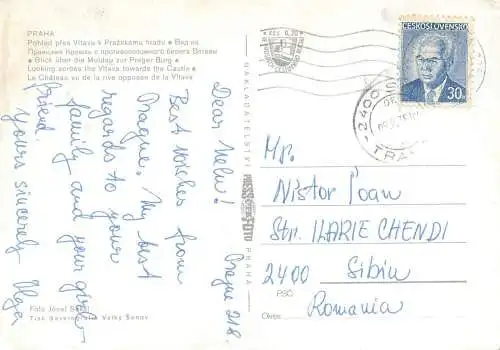 PRAHA
Pohled přes Vltavu k Pražskému hradu • Вид на
Пражский Кремль с противоположного берега Влтавы
• Blick über die Moldau zur Prager Burg •
Looking across the Vltava towards the Castle •
Le Château vu de la rive opposée de la Vltava
Dear Nelu!
Best wishes from
Prague. My best
regards to your
family and your girl-
friend.
Yours sincerely
Olga
Prague 21.8.
Foto Josef
Tisk Severografia Velký Šenov
NAKLADATELSTVÍ
PRESSFOTO
PRAHA
Kčs 0,20
ČESKOSLOVENSKO
30h
2400
Mr.
Nistor Ioan
Str. ILARIE CHENDI
2400 Sibiu
PSČ
Romania
Okres